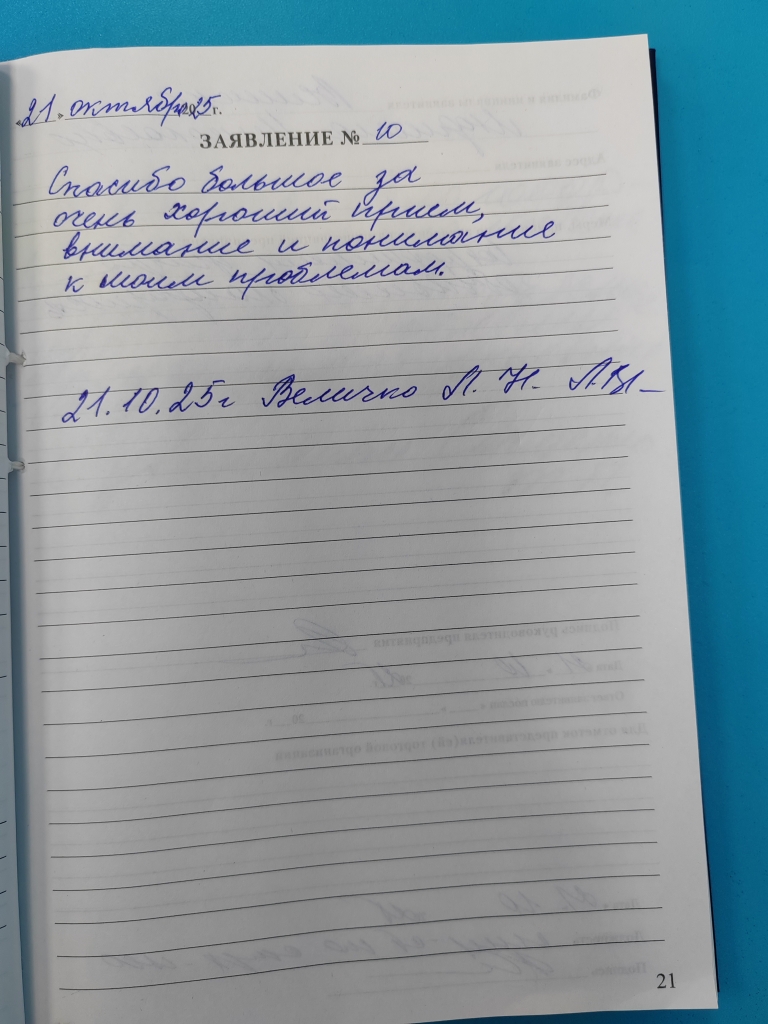 «21» октября 2025г.
ЗАЯВЛЕНИЕ № 10
Спасибо большое за
очень хороший прием,
внимание и понимание
к моим проблемам.
21.10.25г Величко Л. Н.
21